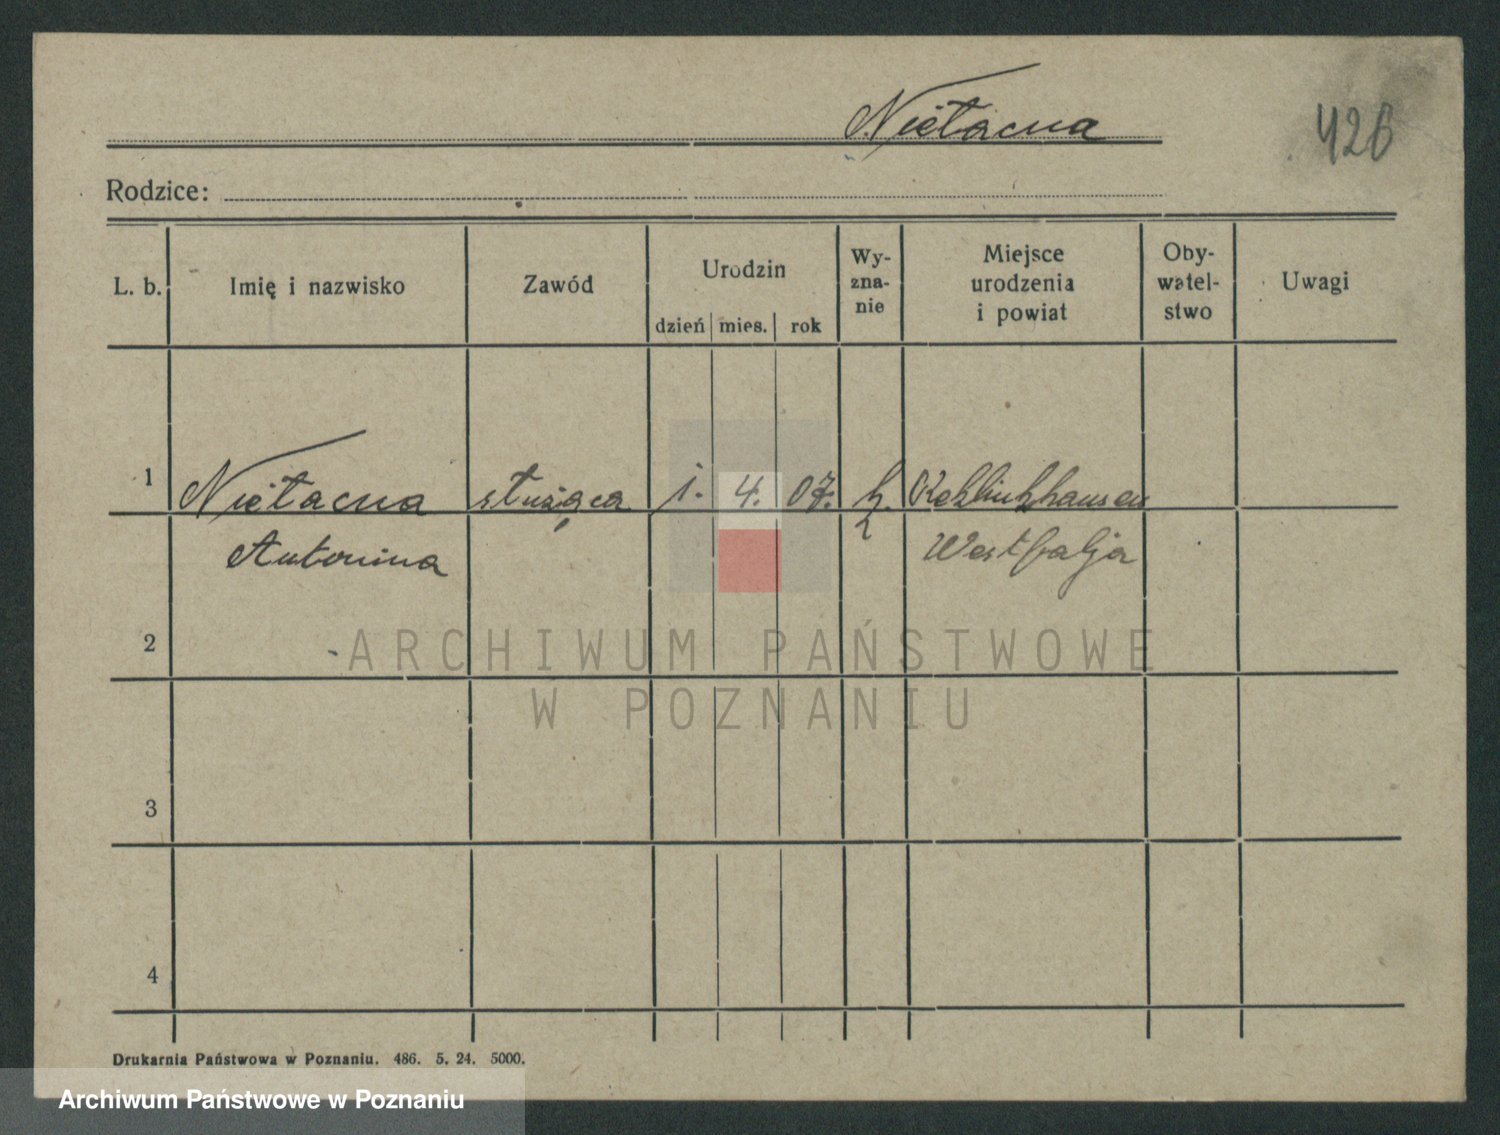 Nietacna
426
Rodzice:
L. b.
Imię i nazwisko
Zawód
Urodzin
dzień mies. rok
Wy-
zna-
nie
Miejsce
urodzenia
i powiat
Oby-
watel-
stwo
Uwagi
1 Nietacna służąca 1. 4. 07. k.
Antonina Westfalja
2
3
4
ARCHIWUM PAŃSTWOWE
W POZNANIU
Drukarnia Państwowa w Poznaniu. 486. 5. 24. 5000.
Archiwum Państwowe w Poznaniu